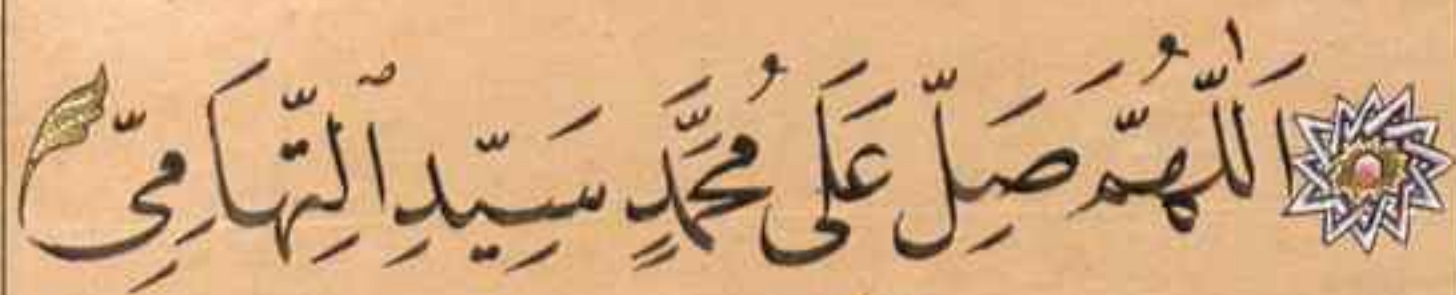 اَللّٰهُمَّ صَلِّ عَلَى مُحَمَّدٍ سَيِّدِ ٱلتِّهَامِيِّ